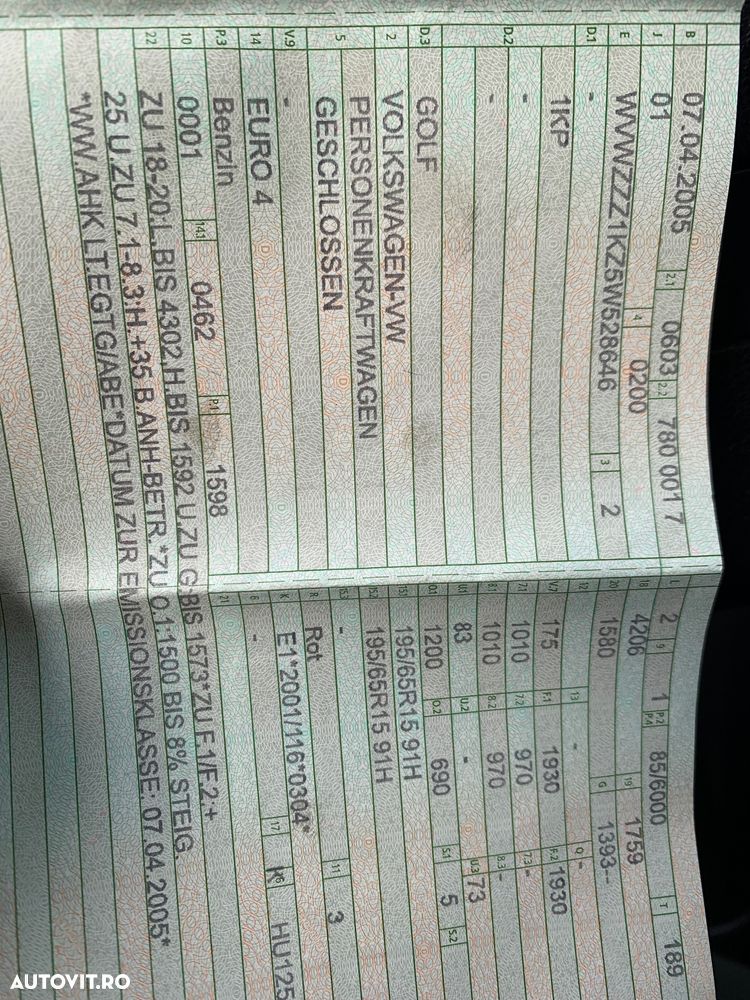 B 07.04.2005 2.1 0603 2.2 780 0017
J 01 4 0200
E WVWZZZ1KZ5W528646 3 2
D.1 -
1KP
D.2 -
-
D.3 GOLF
2 VOLKSWAGEN-VW
5 PERSONENKRAFTWAGEN
GESCHLOSSEN
V.9 -
14 EURO 4
P.3 Benzin
10 0001 14.1 0462 P.1 1598
22 ZU 18-20:L.BIS 4302,H.BIS 1592 U.ZU G:BIS 1573*ZU F.1/F.2:+
25 U.ZU 7.1-8.3:H.+35 B.ANH-BETR.*ZU O.1:1500 BIS 8% STEIG.
*WW.AHK LT.EGTG/ABE*DATUM ZUR EMISSIONSKLASSE: 07.04.2005*
L 2 9 1 P.2 P.4 85/6000 T 189
18 4206 19 1759
20 1580 G 1393--
12 - 13 - Q -
V.7 175 F.1 1930 F.2 1930
7.1 1010 7.2 970 7.3 -
8.1 1010 8.2 970 8.3 -
U.1 83 U.2 - U.3 73
O.1 1200 O.2 690 S.1 5 S.2
15.1 195/65R15 91H
15.2 195/65R15 91H
15.3 -
R Rot 11 3
K E1*2001/116*0304*
6 - 17 K 16 HU125
21
AUTOVIT.RO